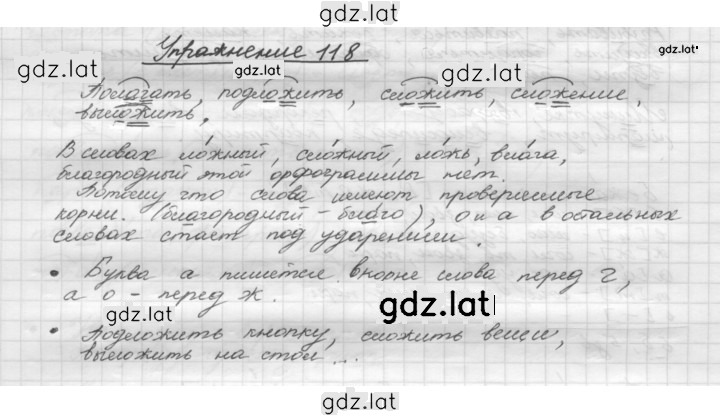 gdz.lat
Упражнение 118
gdz.lat
gdz.lat
gdz.lat
Полагать, подложить, сложить, сложение,
выложить,
В словах ложный, сложный, ложь, влага,
благородный этой орфограммы нет.
Потому что слова имеют проверяемые
корни. (благородный - благо), о и а в остальных
словах стает под ударением.
• Буква а пишется в корне слова перед г,
а о - перед ж.
gdz.lat
gdz.lat
• Подложить кнопку, сложить вещи,
выложить на стол...
gdz.lat